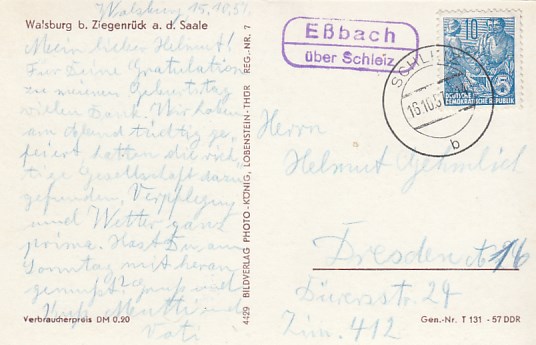 Walsburg 15.10.57
Walsburg b. Ziegenrück a. d. Saale
Mein lieber Helmut!
Für Deine Gratulation
zu meinem Geburtstag
vielen Dank. Wir haben
am Abend tüchtig ge-
feiert hatten die rich-
tige Gesellschaft dazu
gefunden, Verpflegung
und Wetter ganz
prima. Hast Du am
Sonntag mit
Gruß und
Kuß Mutti und
Vati
Verbraucherpreis DM 0.20
4429 BILDVERLAG PHOTO-KÖNIG, LOBENSTEIN-THÜR REG.-NR. 7
Eßbach
über Schleiz
SCHLEIZ
16.10.57
b
10
DEUTSCHE
DEMOKRATISCHE REPUBLIK
5
Herrn
Helmut Gehmlich
Dresden A 16
Dürerstr. 24
Zim. 412
Gen.-Nr. T 131 - 57 DDR